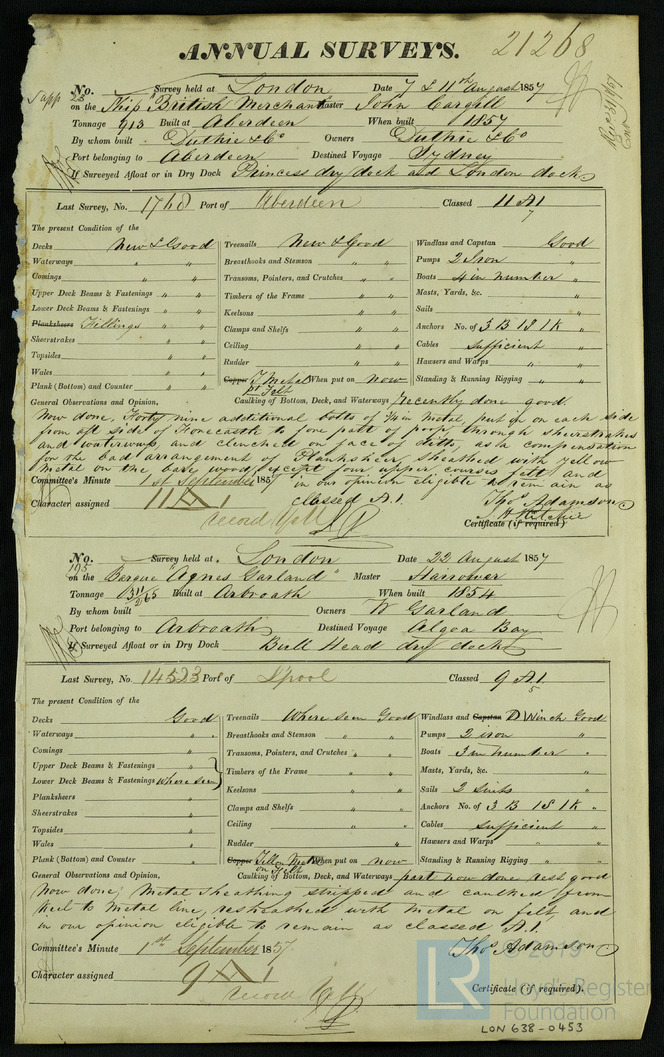 ANNUAL SURVEYS. 21268
No. 23 Survey held at London Date 7 & 11th August 1857
on the Ship "British Merchant" Master John Cargill
Tonnage 913 Built at Aberdeen When built 1857
By whom built Duthie & Co Owners Duthie & Co
Port belonging to Aberdeen Destined Voyage Sydney
If Surveyed Afloat or in Dry Dock Princess dry dock and London dock
Last Survey, No. 1768 Port of Aberdeen Classed 11 A1
7
The present Condition of the
Decks New & Good Treenails New & Good Windlass and Capstan Good
Waterways " " Breasthooks and Stemson " " Pumps 2 Iron "
Comings " " Transoms, Pointers, and Crutches " " Boats 4 in number "
Upper Deck Beams & Fastenings " " Timbers of the Frame " " Masts, Yards, &c. "
Lower Deck Beams & Fastenings " " Keelsons " " Sails "
Planksheers Fillings " " Clamps and Shelfs " " Anchors No. of 3 B 1 S 1 K "
Sheerstrakes " " Ceiling " " Cables sufficient "
Topsides " " Rudder " " Hawsers and Warps "
Wales " " Copper Y Metal When put on now Standing & Running Rigging "
Plank (Bottom) and Counter " " pt Felt
General Observations and Opinion, Caulking of Bottom, Deck, and Waterways Recently done good.
Now done, Forty nine additional bolts of 3/4 in metal put in on each side
from aft side of Forecastle to fore part of poop, through sheerstrakes
and waterways and clenched on face of ditto, as a compensation
for the bad arrangement of Planksheer, sheathed with yellow
metal on the bare wood, except four upper courses felt and
in our opinion eligible to remain as
Committee's Minute 1st September 1857
classed A.1. Thos Adamson
Character assigned 11 A 1
record Yell
Certificate (if required)
No. 195 Survey held at London Date 22 August 1857
on the Barque "Agnes Garland" Master
Tonnage Built at Arbroath When built 1854
By whom built Owners W Garland
Port belonging to Arbroath Destined Voyage Algoa Bay
If Surveyed Afloat or in Dry Dock Bull Head dry dock
Last Survey, No. 14523 Port of L'pool Classed 9 A1
5
The present Condition of the
Decks Good Treenails Where seen Good Windlass and Capstan Winch Good
Waterways " Breasthooks and Stemson " " Pumps 2 iron "
Comings " Transoms, Pointers, and Crutches " " Boats 3 in number "
Upper Deck Beams & Fastenings Timbers of the Frame " " Masts, Yards, &c. "
Lower Deck Beams & Fastenings where seen Keelsons " " Sails 2 suits "
Planksheers " Clamps and Shelfs " " Anchors No. of 3 B 1 S 1 K "
Sheerstrakes " Ceiling " " Cables sufficient "
Topsides " Rudder " Hawsers and Warps "
Wales " Copper Yell Metal When put on now Standing & Running Rigging "
Plank (Bottom) and Counter " on Felt
General Observations and Opinion, Caulking of Bottom, Deck, and Waterways part now done rest good
Now done; Metal sheathing stripped and caulked from
keel to metal line, resheathed with metal on felt, and
in our opinion eligible to remain as classed A.1.
Committee's Minute 1st September 1857 Thos Adamson
Character assigned 9 A 1
record Yell
Certificate (if required).
© 2019
LR Lloyd's Register
Foundation
LON 638-0453